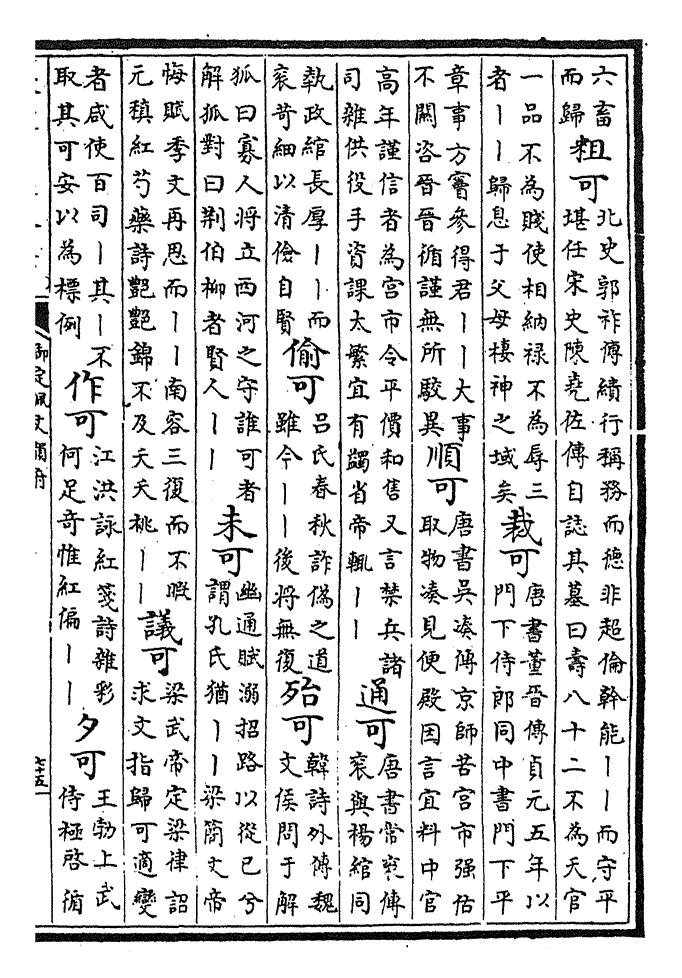 六畜
而歸
粗可
北史郭祚傳績行稱務而德非超倫幹能丨丨而守平
堪任宋史陳堯佐傳自誌其墓曰壽八十二不為天官
一品不為賤使相納祿不為辱三
者丨丨歸息于父母棲神之域矣
裁可
唐書董晉傳貞元五年以
門下侍郎同中書門下平
章事方竇參得君丨丨大事
不關咨晉晉循謹無所駮異
順可
唐書吳湊傳京師苦宮市强估
取物湊見便殿因言宜料中官
高年謹信者為宮市令平價和售又言禁兵諸
司雜供役手資課太繁宜有蠲省帝輒丨丨
通可
唐書常衮傳
衮與楊綰同
執政綰長厚丨丨而
衮苛細以清儉自賢
偷可
吕氏春秋詐偽之道
雖今丨丨後將無復
殆可
韓詩外傳魏
文侯問于解
狐曰寡人將立西河之守誰可者
解狐對曰荆伯柳者賢人丨丨
未可
幽通賦溺招路以從已兮
謂孔氏猶丨丨梁簡文帝
悔賦季文再思而丨丨南容三復而不暇
元稹紅芍藥詩艷艷錦不及夭夭桃丨丨
議可
梁武帝定梁律詔
求文指歸可適變
者咸使百司丨其丨不
取其可安以為標例
作可
江洪詠紅箋詩雜彩
何足奇惟紅偏丨丨
夕可
王勃上武
侍極啓循
御定佩文韻府
七十五